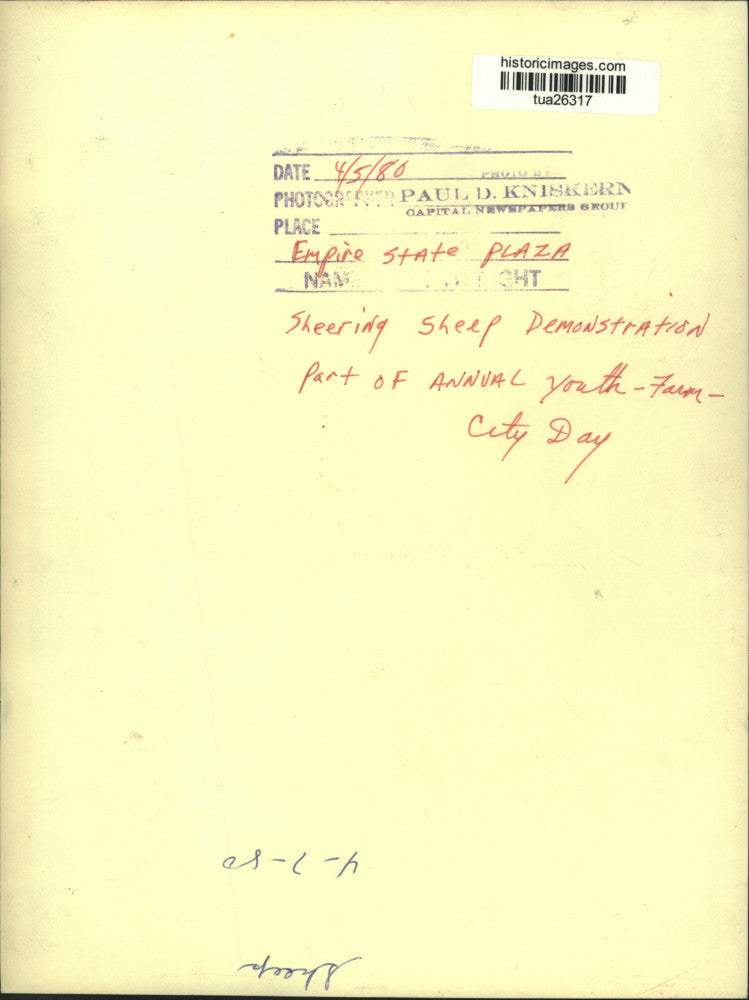 historicimages.com
tua26317
DATE 4/5/80
PHOTO BY
PHOTOGRAPHER PAUL D. KNISKERN
CAPITAL NEWSPAPERS GROUP
PLACE
Empire State PLAZA
Sheering Sheep Demonstration
Part of ANNUAL Youth-Farm-
City Day
4-7-80
Sheep